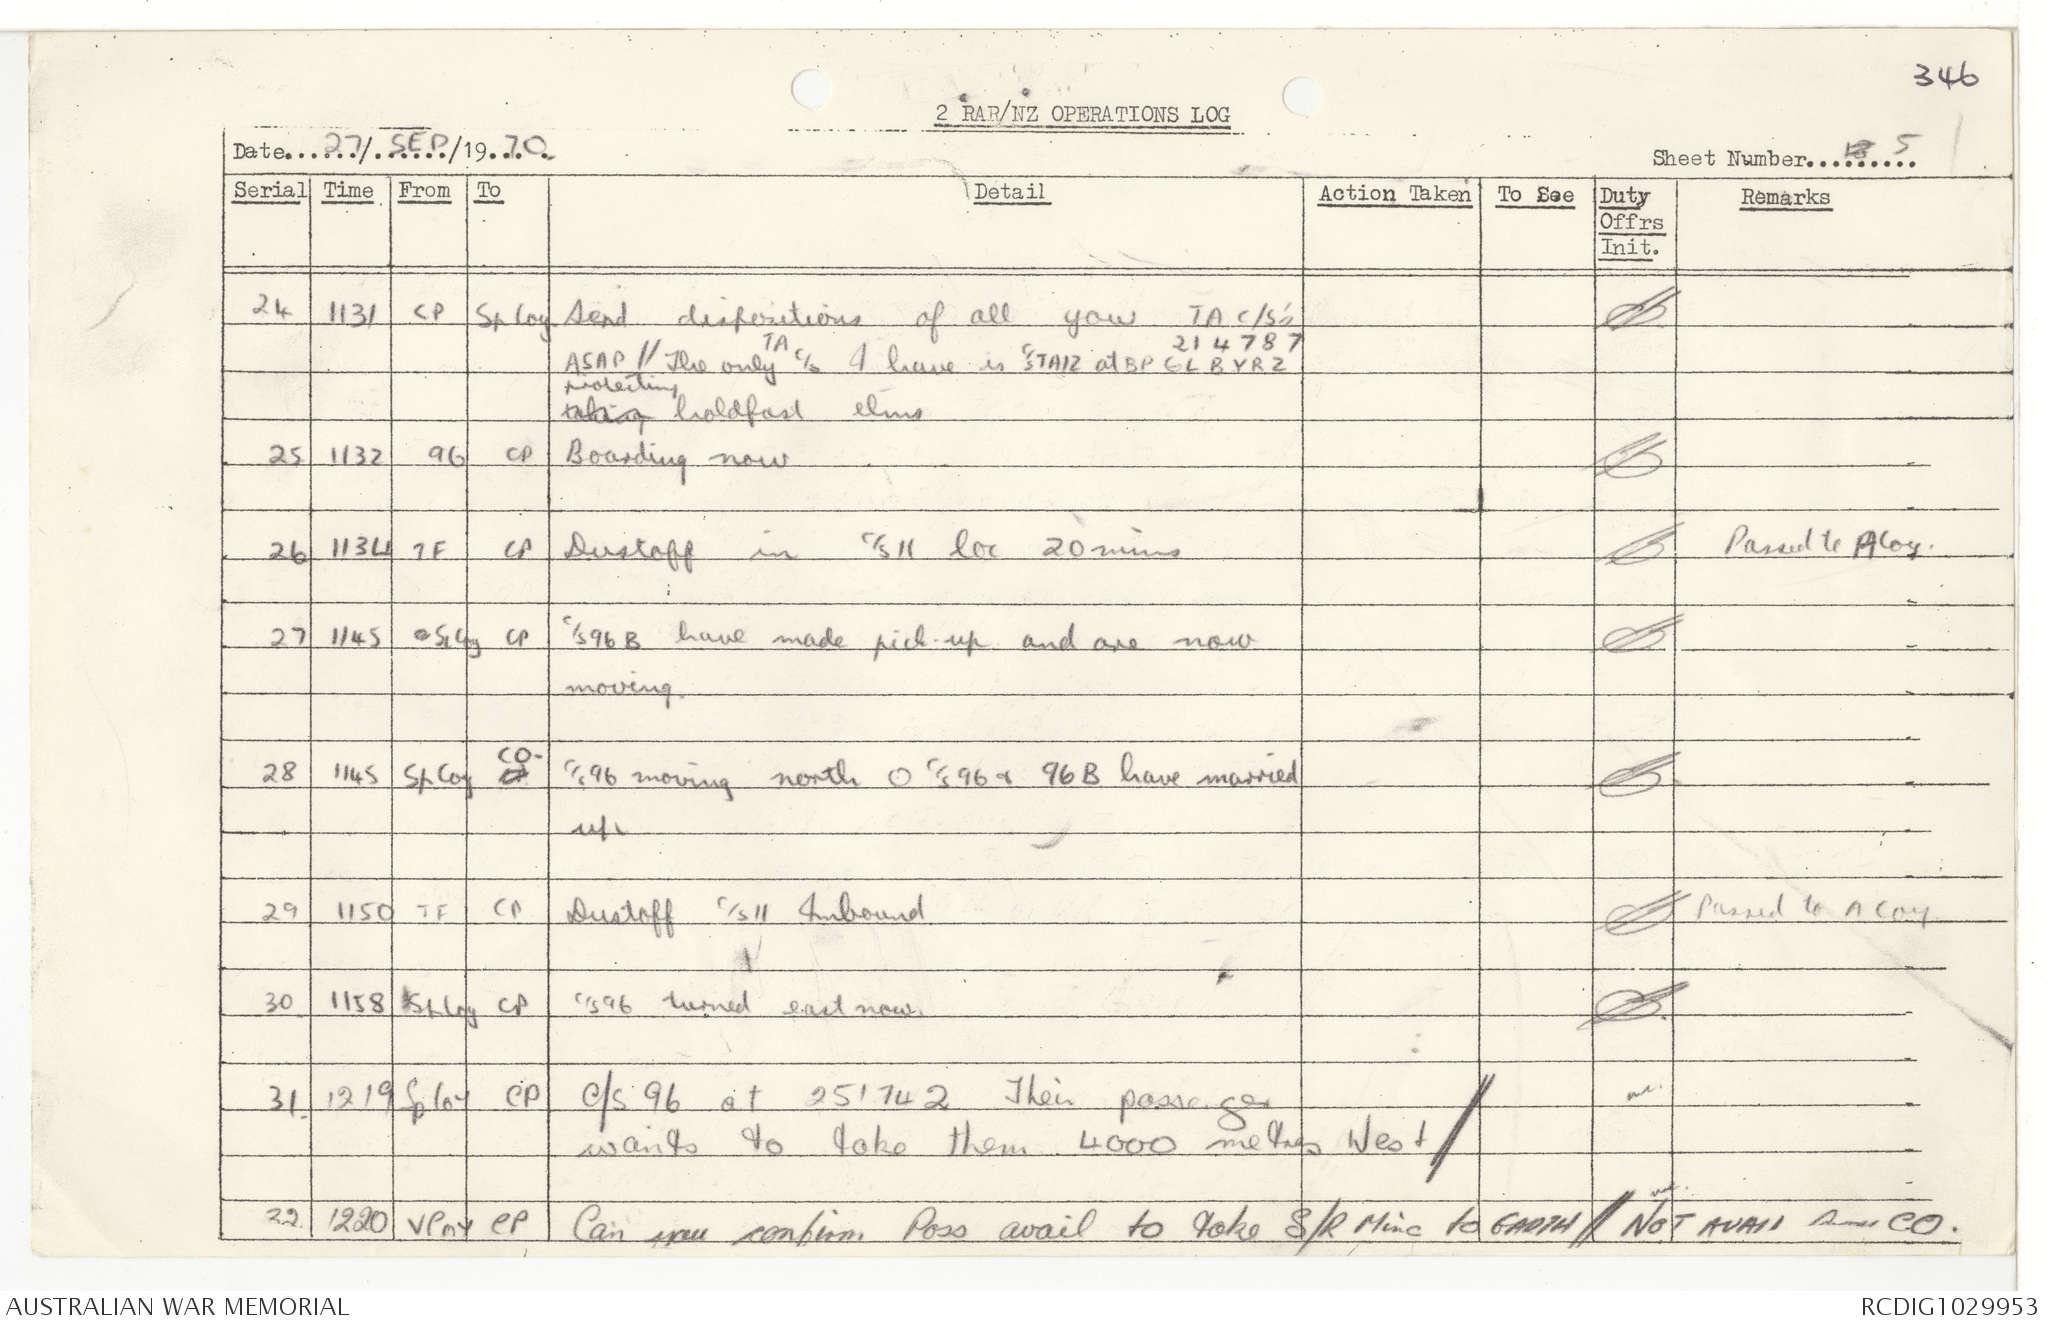 346
2 RAR/NZ OPERATIONS LOG
Date......27/.SEP../19.70.
Sheet Number......... 5
Serial Time From To Detail Action Taken To See Duty Offrs Init. Remarks
24 1131 CP Sp Coy Send dispositions of all your TA C/S's
TA 214787
ASAP // The only C/S I have is C/STA12 at BP GLBYRZ
protecting
taking holdfast elms
25 1132 96 CP Boarding now
26 1134 TF CP Dustoff in C/S 11 loc 20 mins Passed to A Coy.
27 1145 Sp Coy CP C/S 96B have made pick-up and are now
moving.
CO
28 1145 Sp Coy CP C/S 96 moving north O C/S 96 & 96B have married
up.
29 1150 TF CP Dustoff C/S 11 Inbound Passed to A Coy
30 1158 Sp Coy CP C/S 96 turned east now.
31. 1219 Sp Coy CP C/S 96 at 251742 Their passenger
wants to take them 4000 metres West //
32. 1220 CP Can you confirm Poss avail to take S/R Minc to // NOT AVAIL CO.
AUSTRALIAN WAR MEMORIAL
RCDIG1029953